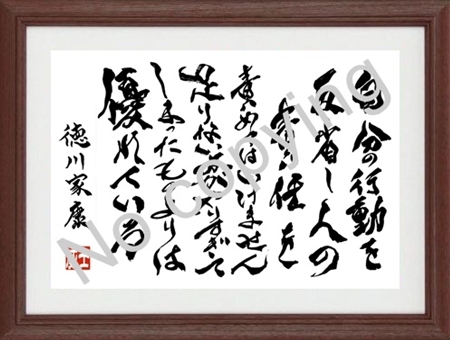 自分の行動を
反省し人の
責任を
責めてはいけません
足りない方がやりすぎて
しまったものよりは
優れている
徳川家康
No Copying